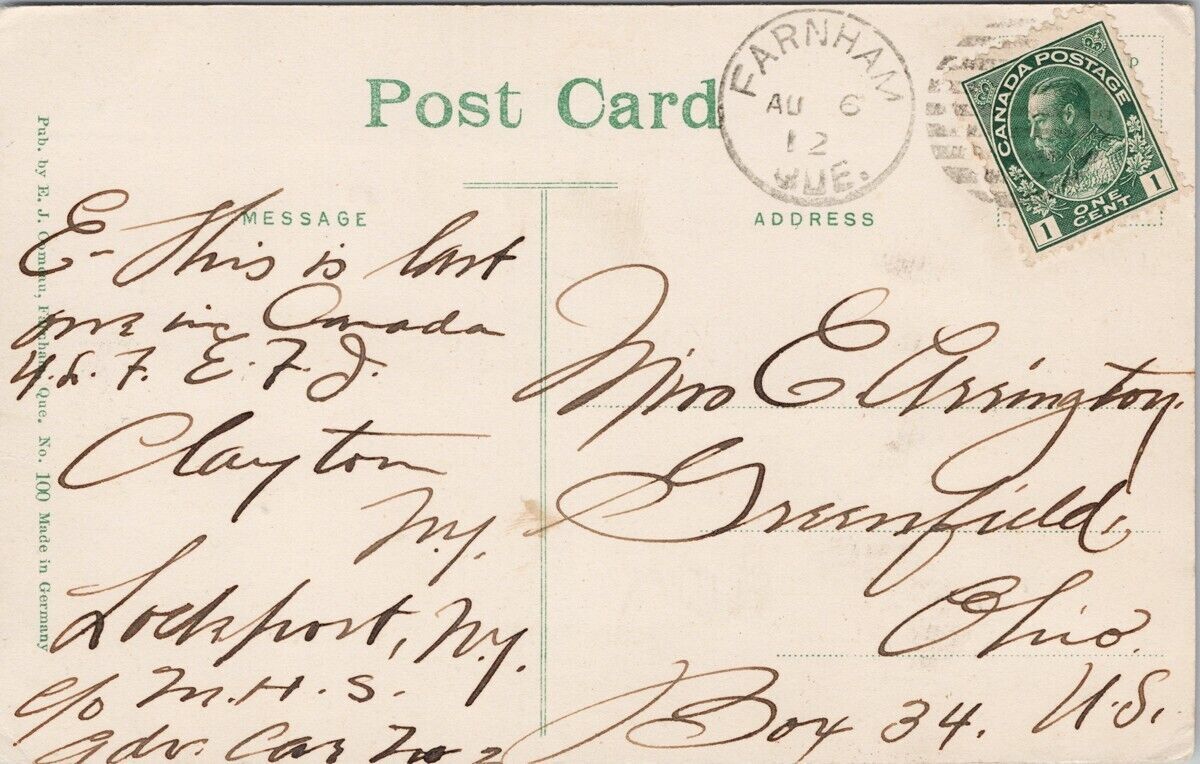 Post Card
FARNHAM
AU 6
12
QUE.
CANADA POSTAGE
1 ONE CENT 1
MESSAGE
ADDRESS
E- This is last
one in Canada
Y.S.F. E.F.J.
Clayton
N.Y.
Lockport, N.Y.
c/o M.H.S.
Adv. Car No 2
Miss E Arrington.
Greenfield,
Ohio.
Box 34. U.S.
Pub. by E. J. Comeau, Farnham, Que. No. 100 Made in Germany